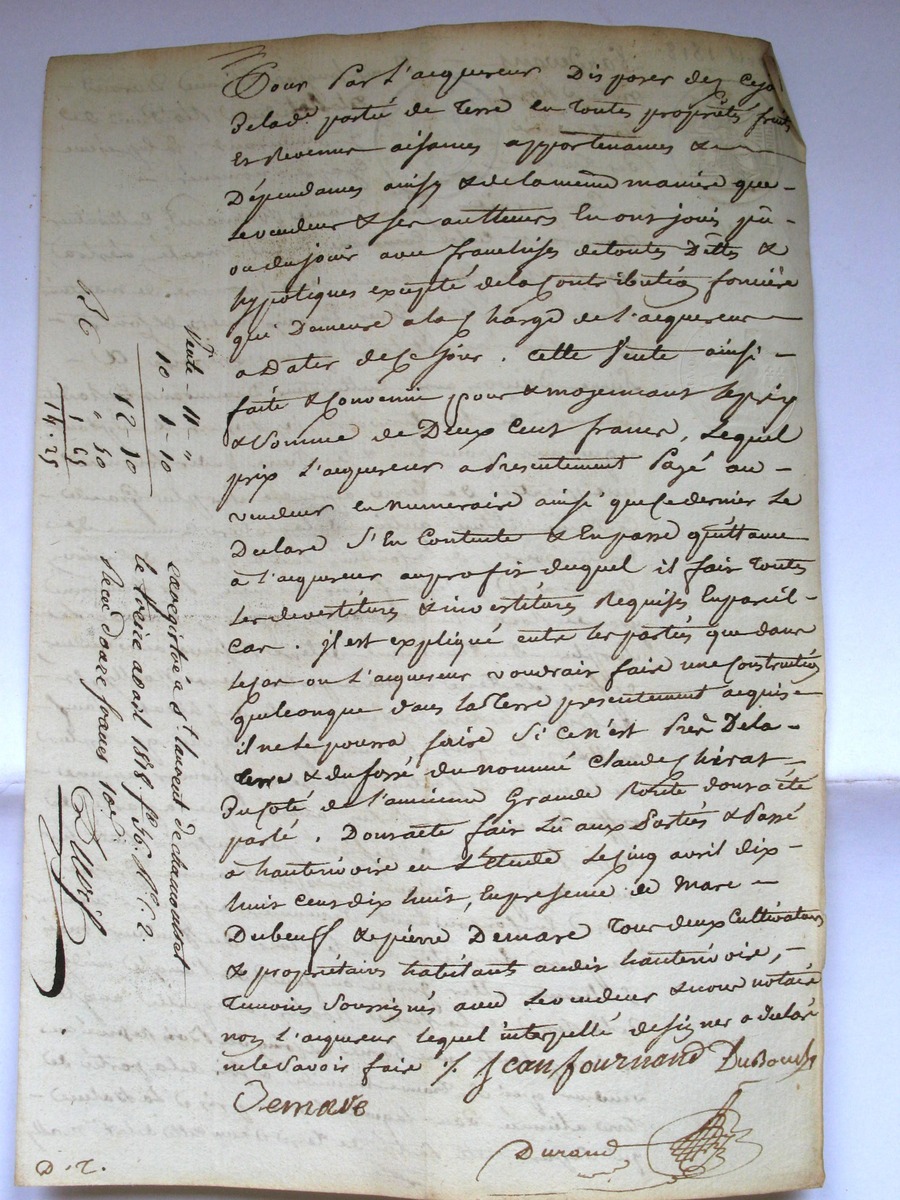 Pour Par L'acquereur Disposer dez cejo
Delade. partie de Terre en Toutes propriétés fruits
Et Revenus aisances appartenances &
Dépendances ainsy & de la meme maniere que
Le vendeur & ses autteurs En ont joui pû
ou du jouir avec franchises de toutes Dettes &
hypotéques excepté de la Contribution fonciere
qui Demeure a la Charge de l'acquereur
a Dater de Ce jour. Cette Vente ainsi
faite & Convenue pour & moyennant le prix
& Somme de Deux Cent francs, Lequel
prix L'acquereur a Presentement Payé au
vendeur en Numeraire ainsi que Ce dernier Le
Declare S'En Contente & En passe quittance
à l'acquereur au profit duquel il fait Toutes
Les devestitures & investitures Requises En pareil
Cas. jl est expliqué entre les parties que dans
Le Cas ou L'acquereur voudrait faire une Construction
quelconque dans la Terre presentement acquise
il ne le pourra faire Si ce n'est Près De la
Terre & du fossé du nommé Claude Chirat
Du Coté de l'ancienne Grande Route dont a été
parlé. Dont acte fait Lû aux Parties & Passé
à hauterivoire en L'Etude Le Cinq avril dix
huit Cent dix huit, En presence de Marc
Dubeuf & pierre Demare Tous deux Cultivateurs
& propriétaires habitants audit hauterivoire,
Temoins Soussignés avec Le vendeur & nous notaire
non L'acquereur lequel interpellé de signer a declaré
ne le Savoir faire ./. Jean fournand DuBouch
Demare
Durand
D. r.
Vente 11 - "
10 - 1 - 10
12 - 10
" 50
1 65
14.25
Enregistré a St. laurent de chamousset
le treize avril 1818 fo. 56. Vo. C. 2.
Recu douze francs 10c.